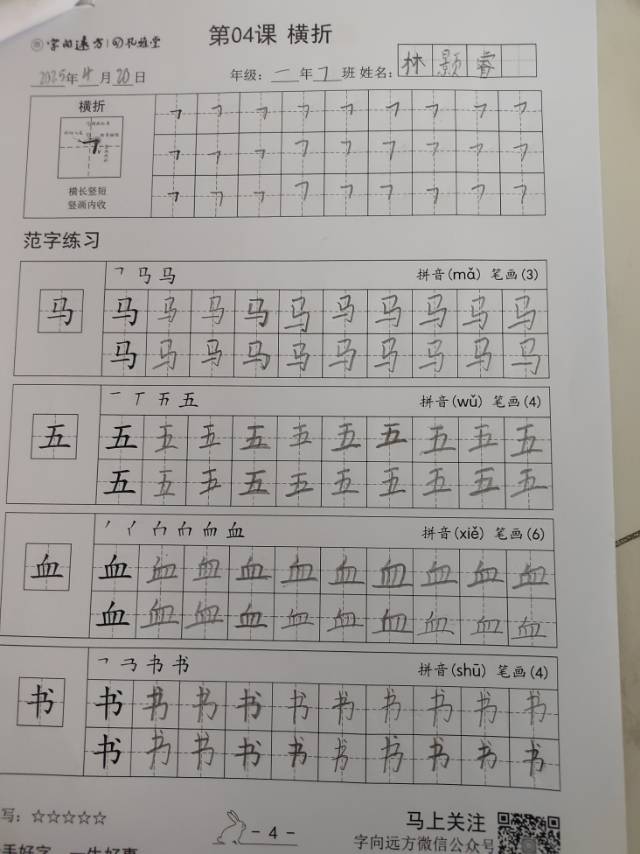 字向远方
第04课 横折
2025年4月20日
年级：一年7班 姓名：林颢睿
横折
横长竖短
竖画内收
范字练习
㇕ 马 马
拼音(mǎ) 笔画(3)
马 马 马 马 马 马 马 马 马 马 马
马 马 马 马 马 马 马 马 马 马
一 丅 五
拼音(wǔ) 笔画(4)
五 五 五 五 五 五 五 五 五 五 五
五 五 五 五 五 五 五 五 五 五
血
拼音(xiě) 笔画(6)
血 血 血 血 血 血 血 血 血 血 血
血 血 血 血 血 血 血 血 血 血
㇕ 书 书
拼音(shū) 笔画(4)
书 书 书 书 书 书 书 书 书 书 书
书 书 书 书 书 书 书 书 书 书
写：☆☆☆☆☆
- 4 -
马上关注
字向远方微信公众号
手好字，一生好事